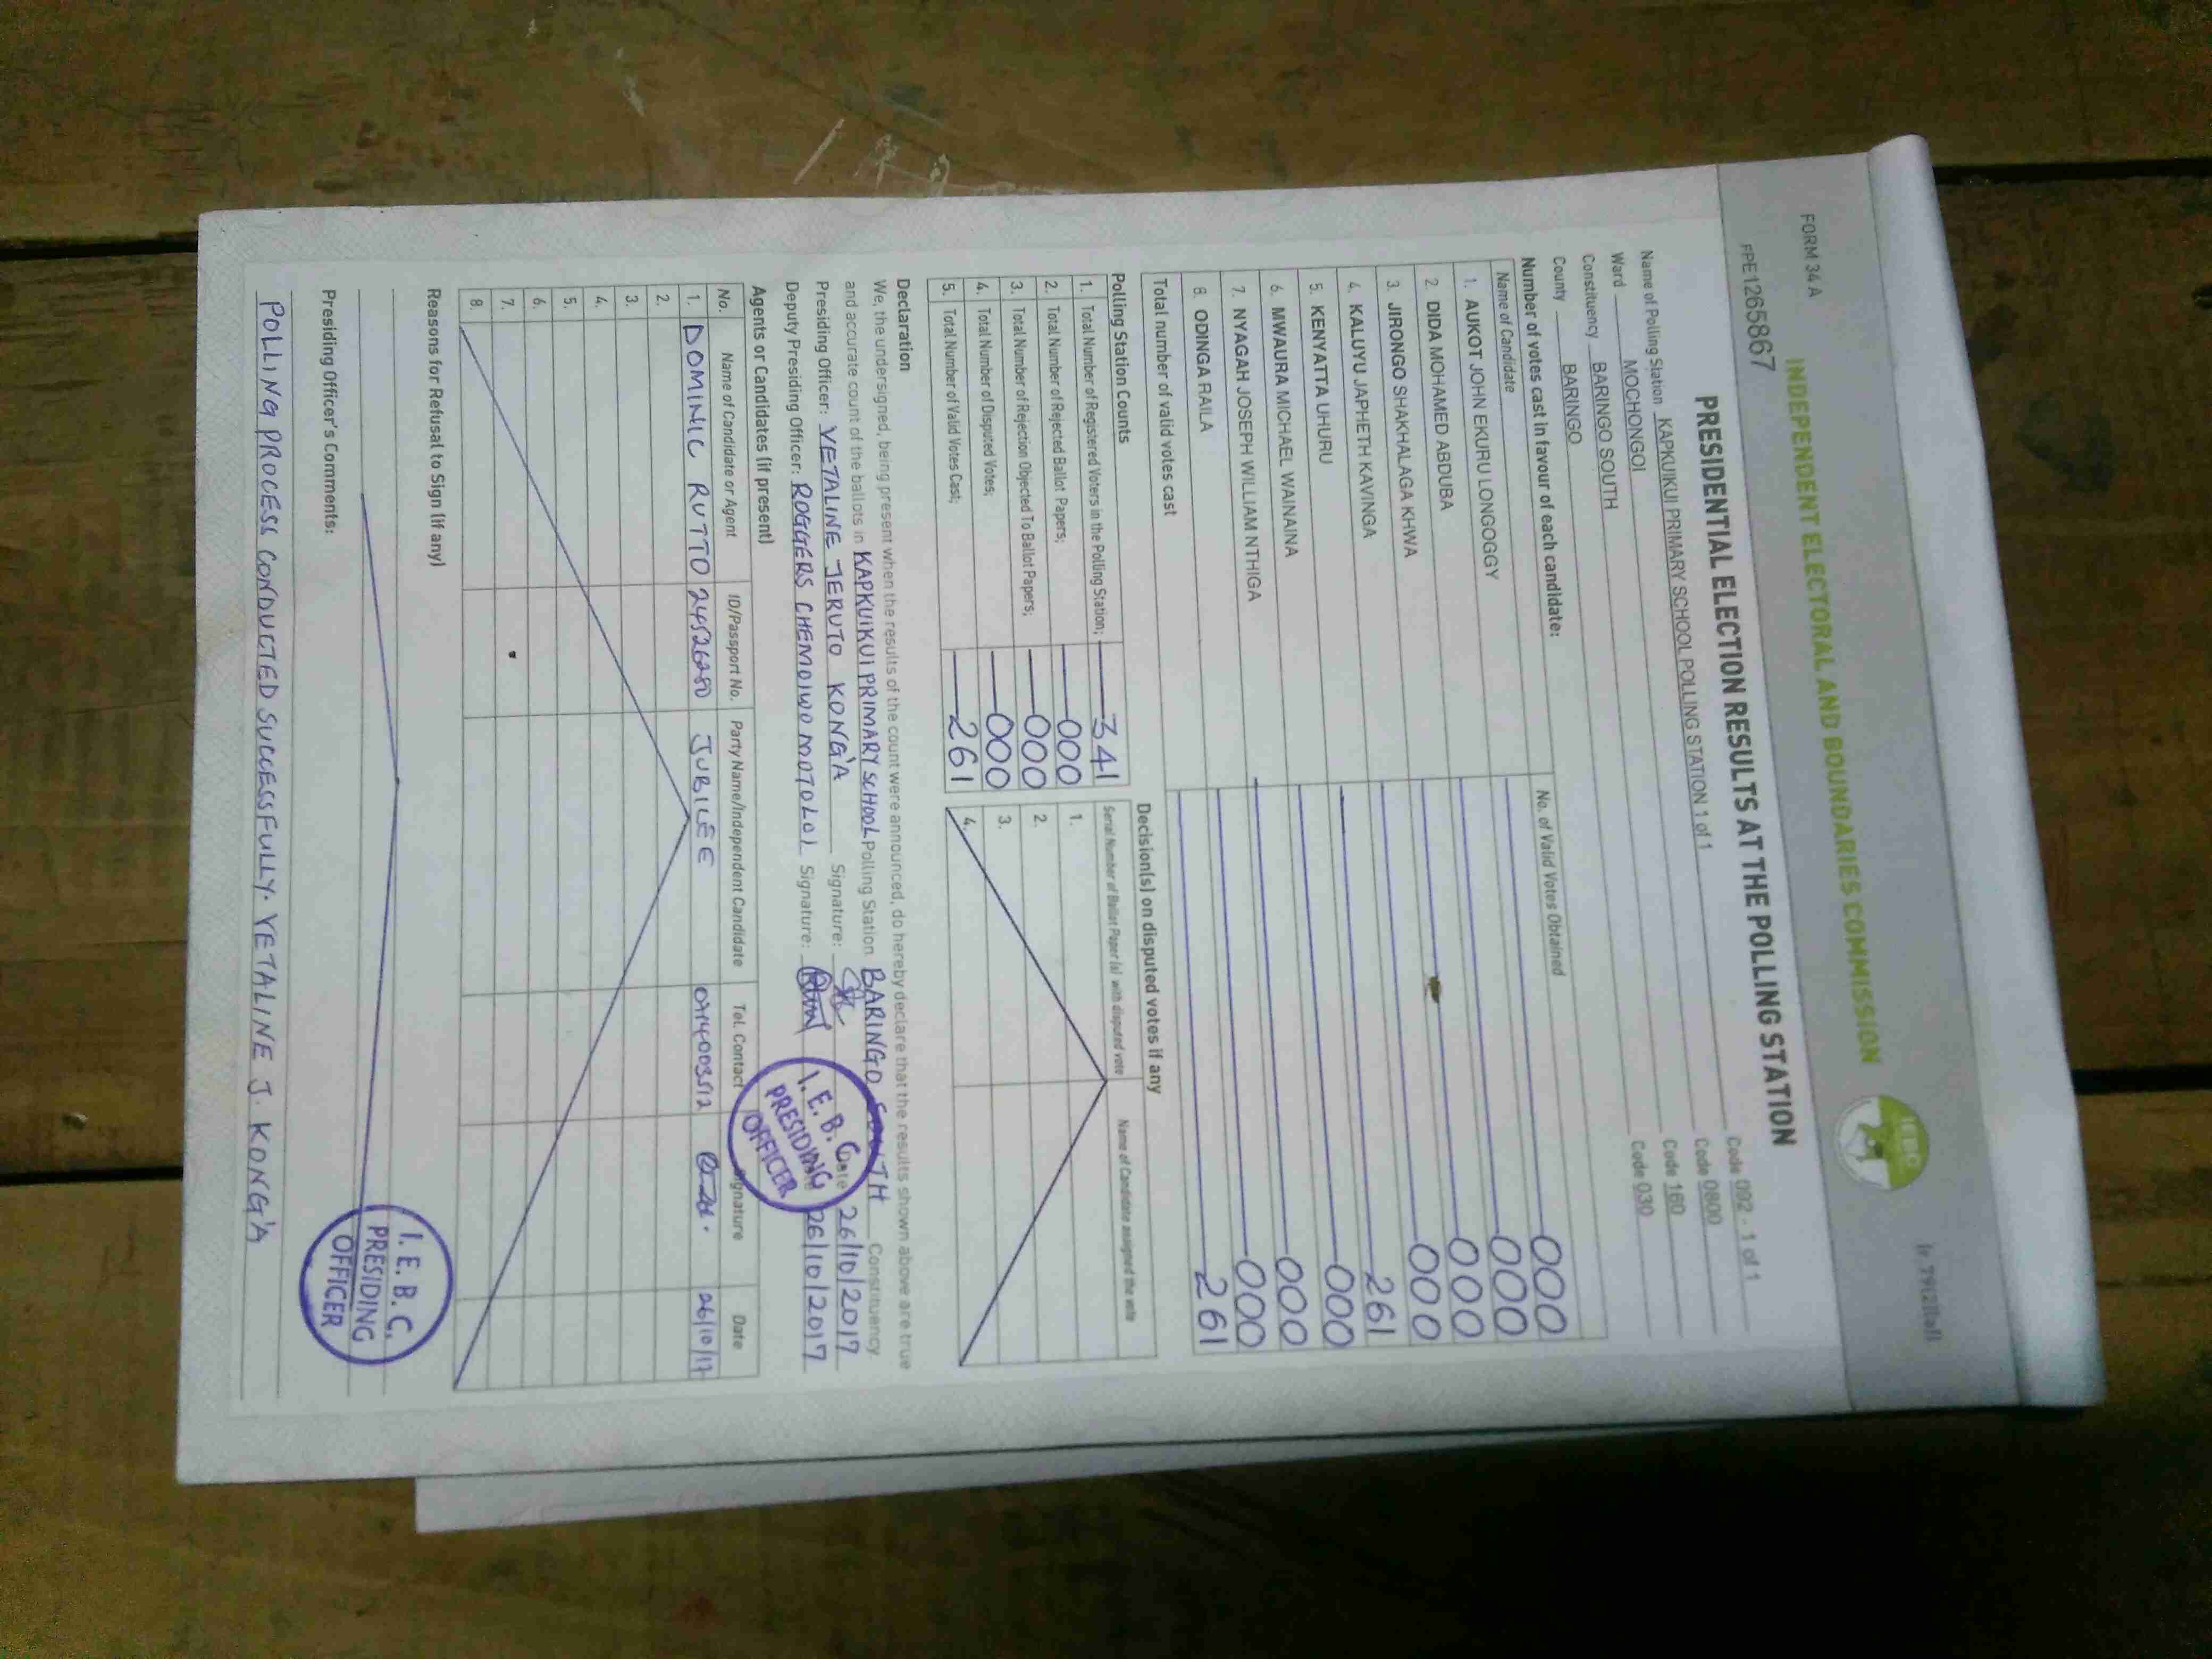 FORM 34A
INDEPENDENT ELECTORAL AND BOUNDARIES COMMISSION
IEBC
FPE1265867
PRESIDENTIAL ELECTION RESULTS AT THE POLLING STATION
Name of Polling Station KAPKUIKUI PRIMARY SCHOOL POLLING STATION 1 of 1 Code 092 - 1 of 1
Ward MOCHONGOI Code 0800
Constituency BARINGO SOUTH Code 160
County BARINGO Code 030
Number of votes cast in favour of each candidate:
Name of Candidate No. of Valid Votes Obtained
1. AUKOT JOHN EKURU LONGOGGY 000
2. DIDA MOHAMED ABDUBA 000
3. JIRONGO SHAKHALAGA KHWA 000
4. KALUYU JAPHETH KAVINGA 000
5. KENYATTA UHURU 261
6. MWAURA MICHAEL WAINAINA 000
7. NYAGAH JOSEPH WILLIAM NTHIGA 000
8. ODINGA RAILA 000
Total number of valid votes cast 261
Polling Station Counts
1. Total Number of Registered Voters in the Polling Station; 341
2. Total Number of Rejected Ballot Papers; 000
3. Total Number of Rejection Objected To Ballot Papers; 000
4. Total Number of Disputed Votes; 000
5. Total Number of Valid Votes Cast; 261
Decision(s) on disputed votes if any
Serial Number of Ballot Paper (s) with disputed vote Name of Candidate assigned the vote
1.
2.
3.
4.
Declaration
We, the undersigned, being present when the results of the count were announced, do hereby declare that the results shown above are true
and accurate count of the ballots in KAPKUIKUI PRIMARY SCHOOL Polling Station BARINGO SOUTH Constituency
Presiding Officer: YETALINE JERUTO KONG'A Signature: Date 26/10/2017
Deputy Presiding Officer: ROGGERS CHEMOIWO MOTOLOI Signature: 26/10/2017
I. E. B. C.
PRESIDING
OFFICER
Agents or Candidates (if present)
No. Name of Candidate or Agent ID/Passport No. Party Name/Independent Candidate Tel. Contact Signature Date
1. DOMINIC RUTTO 24526280 JUBILEE 0714003512 26/10/17
2.
3.
4.
5.
6.
7.
8.
Reasons for Refusal to Sign (if any)
I. E. B. C.
PRESIDING
OFFICER
Presiding Officer's Comments:
POLLING PROCESS CONDUCTED SUCCESSFULLY. YETALINE J. KONG'A